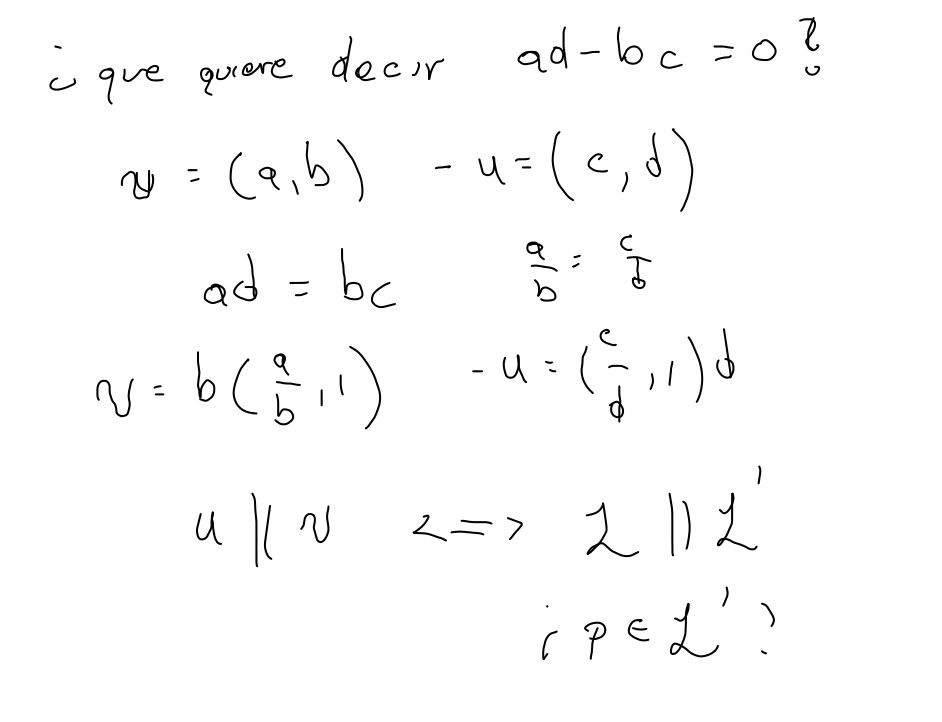 ¿ que quiere decir ad - bc = 0 ?
v = (a,b) - u = (c,d)
ad = bc a/b = c/d
v = b(a/b, 1) - u = (c/d, 1)d
u || v <=> L || L'
¿ p ∈ L' ?